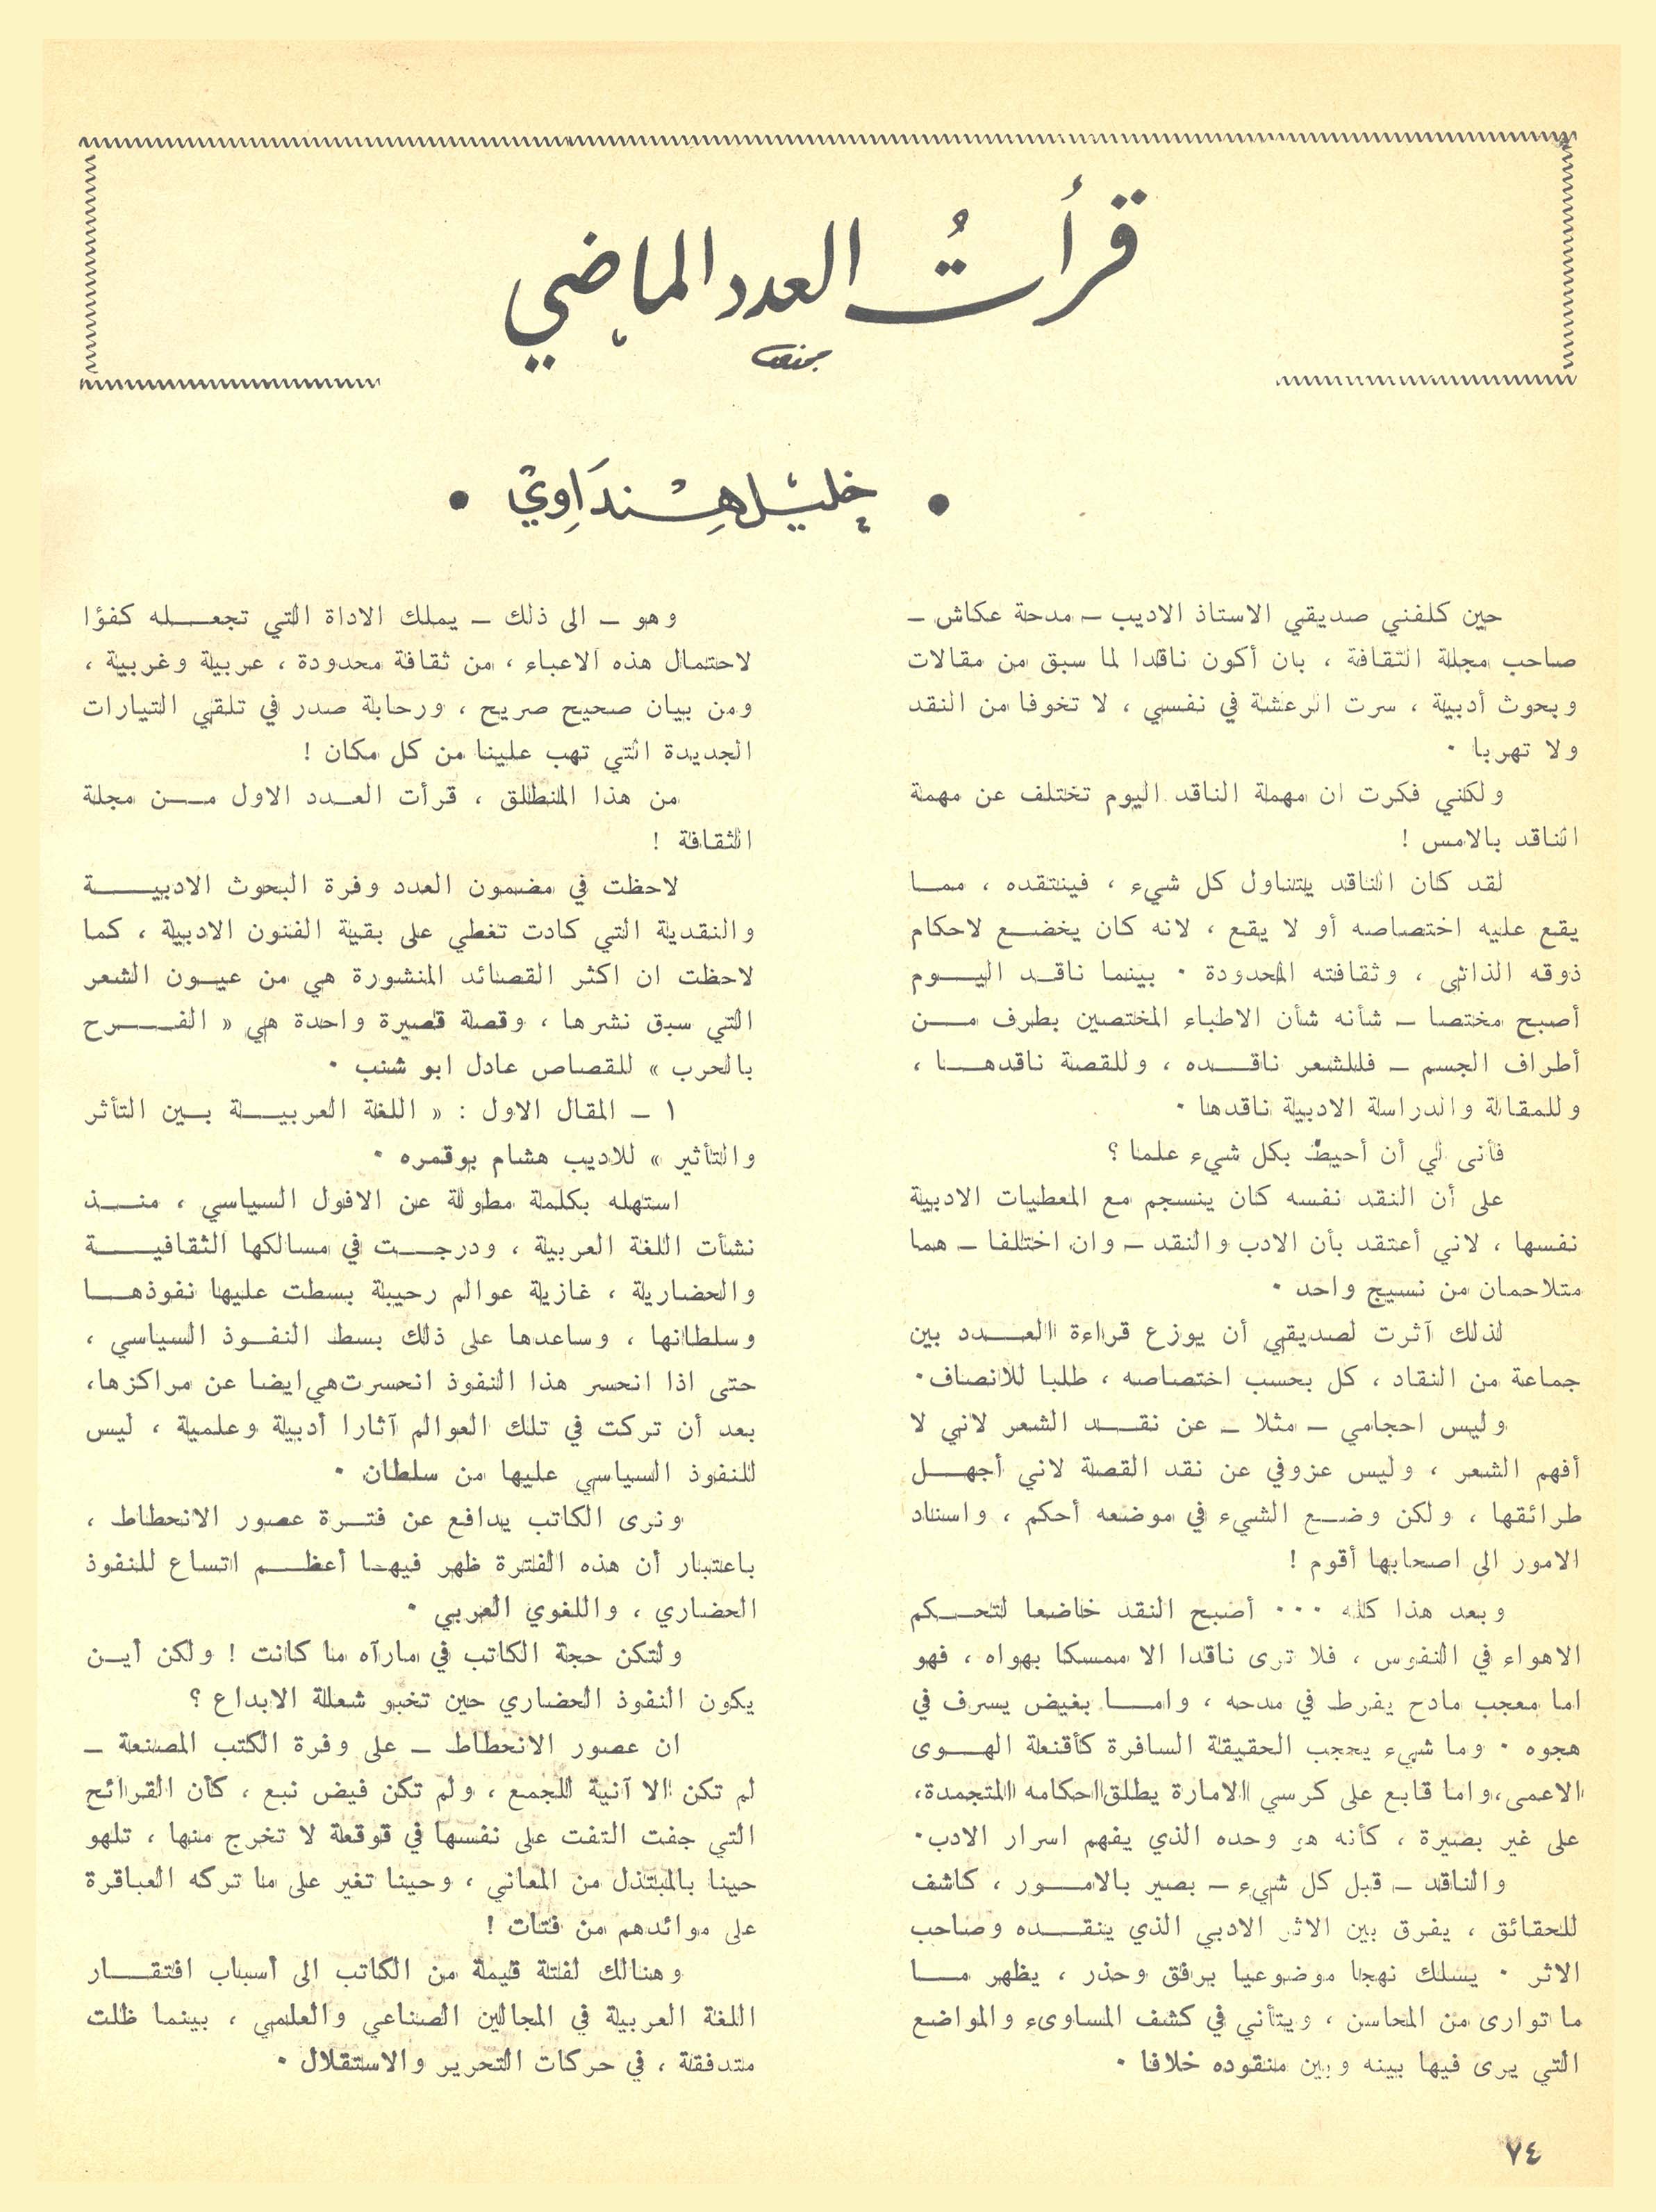 قرأتُ العدد الماضي
• خليل هنداوي •
حين كلفني صديقي الاستاذ الاديب – مدحة عكاش –
صاحب مجلة الثقافة ، بان أكون ناقدا لما سبق من مقالات
وبحوث أدبية ، سرت الرعشة في نفسي ، لا تخوفا من النقد
ولا تهربا .
ولكني فكرت ان مهمة الناقد اليوم تختلف عن مهمة
الناقد بالامس !
لقد كان الناقد يتناول كل شيء ، فينتقده ، مما
يقع عليه اختصاصه أو لا يقع ، لانه كان يخضع لاحكام
ذوقه الذاتي ، وثقافته المحدودة . بينما ناقد اليوم
أصبح مختصا – شأنه شأن الاطباء المختصين بطرف من
أطراف الجسم – فللشعر ناقده ، وللقصة ناقدها ،
وللمقالة والدراسة الادبية ناقدها .
فأنى لي أن أحيط بكل شيء علما ؟
على أن النقد نفسه كان ينسجم مع المعطيات الادبية
نفسها ، لاني أعتقد بأن الادب والنقد – وان اختلفا – هما
متلاحمان من نسيج واحد .
لذلك آثرت لصديقي أن يوزع قراءة العدد بين
جماعة من النقاد ، كل بحسب اختصاصه ، طلبا للانصاف .
وليس احجامي – مثلا – عن نقد الشعر لاني لا
أفهم الشعر ، وليس عزوفي عن نقد القصة لاني أجهل
طرائقها ، ولكن وضع الشيء في موضعه أحكم ، واسناد
الامور الى اصحابها أقوم !
وبعد هذا كله ... أصبح النقد خاضعا لتحكم
الاهواء في النفوس ، فلا ترى ناقدا الا ممسكا بهواه ، فهو
اما معجب مادح يفرط في مدحه ، واما بغيض يسرف في
هجوه . وما شيء يحجب الحقيقة السافرة كأقنعة الهوى
الاعمى، واما قابع على كرسي الامارة يطلق احكامه المتجمدة،
على غير بصيرة ، كأنه هو وحده الذي يفهم اسرار الادب .
والناقد – قبل كل شيء – بصير بالامور ، كاشف
للحقائق ، يفرق بين الاثر الادبي الذي ينقده وصاحب
الاثر . يسلك نهجا موضوعيا برفق وحذر ، يظهر ما
ما توارى من المحاسن ، ويتأنى في كشف المساوىء والمواضع
التي يرى فيها بينه وبين منقوده خلافا .
وهو – الى ذلك – يملك الاداة التي تجعله كفؤا
لاحتمال هذه الاعباء ، من ثقافة محدودة ، عربية وغربية ،
ومن بيان صحيح صريح ، ورحابة صدر في تلقي التيارات
الجديدة التي تهب علينا من كل مكان !
من هذا المنطلق ، قرأت العدد الاول من مجلة
الثقافة !
لاحظت في مضمون العدد وفرة البحوث الادبية
والنقدية التي كادت تغطي على بقية الفنون الادبية ، كما
لاحظت ان اكثر القصائد المنشورة هي من عيون الشعر
التي سبق نشرها ، وقصة قصيرة واحدة هي « الفرح
بالحرب » للقصاص عادل ابو شنب .
١ – المقال الاول : « اللغة العربية بين التأثر
والتأثير » للاديب هشام بوقمره .
استهله بكلمة مطولة عن الافول السياسي ، منذ
نشأت اللغة العربية ، ودرجت في مسالكها الثقافية
والحضارية ، غازية عوالم رحيبة بسطت عليها نفوذها
وسلطانها ، وساعدها على ذلك بسط النفوذ السياسي ،
حتى اذا انحسر هذا النفوذ انحسرت هي ايضا عن مراكزها،
بعد أن تركت في تلك العوالم آثارا أدبية وعلمية ، ليس
للنفوذ السياسي عليها من سلطان .
ونرى الكاتب يدافع عن فترة عصور الانحطاط ،
باعتبار أن هذه الفترة ظهر فيها أعظم اتساع للنفوذ
الحضاري ، واللغوي العربي .
ولتكن حجة الكاتب في مارآه ما كانت ! ولكن أين
يكون النفوذ الحضاري حين تخبو شعلة الابداع ؟
ان عصور الانحطاط – على وفرة الكتب المصنعة –
لم تكن الا آنية للجمع ، ولم تكن فيض نبع ، كأن القرائح
التي جفت التفت على نفسها في قوقعة لا تخرج منها ، تلهو
حينا بالمبتذل من المعاني ، وحينا تغير على ما تركه العباقرة
على موائدهم من فتات !
وهنالك لفتة قيمة من الكاتب الى أسباب افتقار
اللغة العربية في المجالين الصناعي والعلمي ، بينما ظلت
متدفقة ، في حركات التحرير والاستقلال .
٧٤